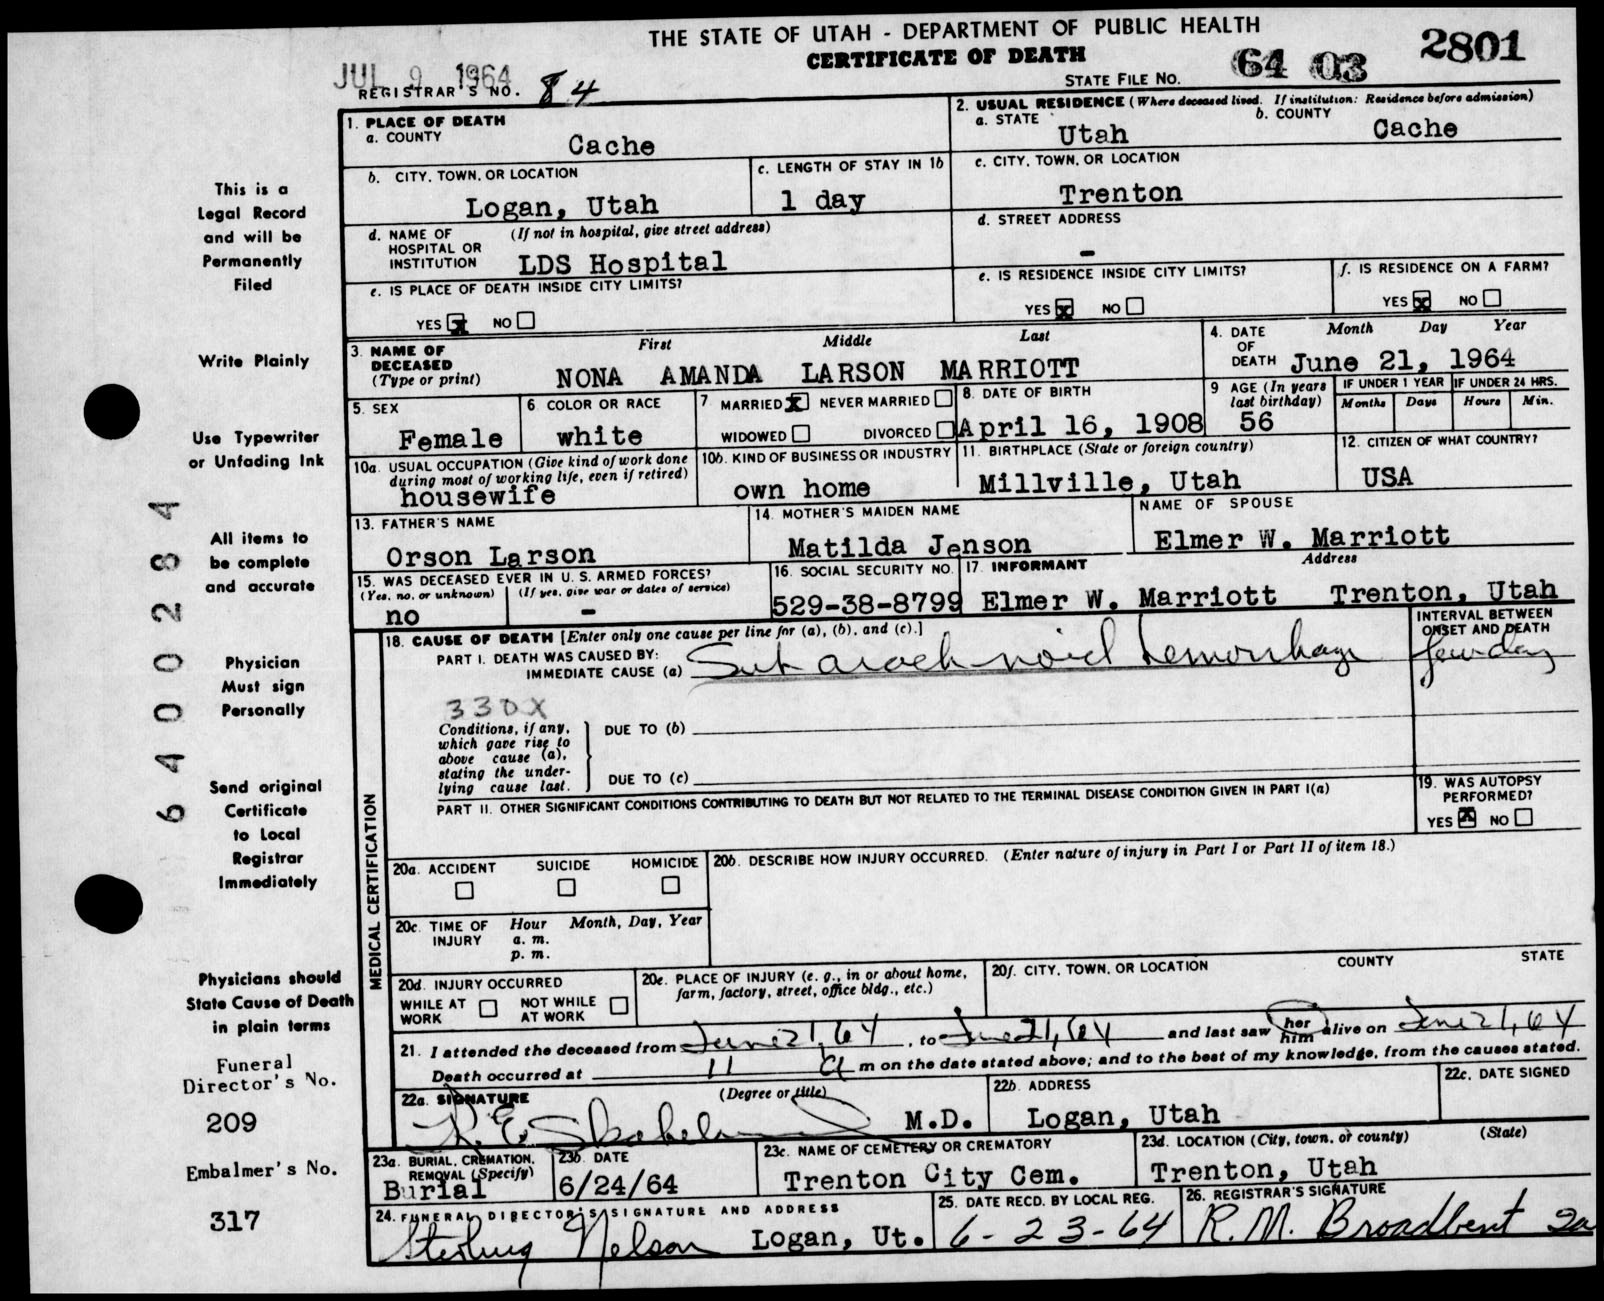 THE STATE OF UTAH - DEPARTMENT OF PUBLIC HEALTH
CERTIFICATE OF DEATH
JUL 9 1964
REGISTRAR'S NO. 84
STATE FILE NO. 64 03 2801
1. PLACE OF DEATH
a. COUNTY Cache
2. USUAL RESIDENCE (Where deceased lived. If institution: Residence before admission)
a. STATE Utah b. COUNTY Cache
b. CITY, TOWN, OR LOCATION Logan, Utah
c. LENGTH OF STAY IN 1b 1 day
c. CITY, TOWN, OR LOCATION Trenton
d. NAME OF HOSPITAL OR INSTITUTION (If not in hospital, give street address) LDS Hospital
d. STREET ADDRESS -
e. IS PLACE OF DEATH INSIDE CITY LIMITS? YES X NO
e. IS RESIDENCE INSIDE CITY LIMITS? YES X NO
f. IS RESIDENCE ON A FARM? YES X NO
3. NAME OF DECEASED (Type or print) First Middle Last
NONA AMANDA LARSON MARRIOTT
4. DATE OF DEATH Month Day Year June 21, 1964
5. SEX Female
6. COLOR OR RACE white
7. MARRIED X NEVER MARRIED WIDOWED DIVORCED
8. DATE OF BIRTH April 16, 1908
9 AGE (In years last birthday) 56
IF UNDER 1 YEAR Months Days
IF UNDER 24 HRS. Hours Min.
10a. USUAL OCCUPATION (Give kind of work done during most of working life, even if retired) housewife
10b. KIND OF BUSINESS OR INDUSTRY own home
11. BIRTHPLACE (State or foreign country) Millville, Utah
12. CITIZEN OF WHAT COUNTRY? USA
13. FATHER'S NAME Orson Larson
14. MOTHER'S MAIDEN NAME Matilda Jenson
NAME OF SPOUSE Elmer W. Marriott
15. WAS DECEASED EVER IN U. S. ARMED FORCES? (Yes, no, or unknown) no (If yes, give war or dates of service) -
16. SOCIAL SECURITY NO. 529-38-8799
17. INFORMANT Elmer W. Marriott Address Trenton, Utah
MEDICAL CERTIFICATION
18. CAUSE OF DEATH [Enter only one cause per line for (a), (b), and (c).]
INTERVAL BETWEEN ONSET AND DEATH
PART I. DEATH WAS CAUSED BY:
IMMEDIATE CAUSE (a) Subarachnoid hemorrhage
330X
Conditions, if any, which gave rise to above cause (a), stating the underlying cause last.
DUE TO (b)
DUE TO (c)
PART II. OTHER SIGNIFICANT CONDITIONS CONTRIBUTING TO DEATH BUT NOT RELATED TO THE TERMINAL DISEASE CONDITION GIVEN IN PART I(a)
19. WAS AUTOPSY PERFORMED? YES X NO
20a. ACCIDENT SUICIDE HOMICIDE
20b. DESCRIBE HOW INJURY OCCURRED. (Enter nature of injury in Part I or Part II of item 18.)
20c. TIME OF INJURY Hour Month, Day, Year
a. m.
p. m.
20d. INJURY OCCURRED
WHILE AT WORK NOT WHILE AT WORK
20e. PLACE OF INJURY (e. g., in or about home, farm, factory, street, office bldg., etc.)
20f. CITY, TOWN, OR LOCATION COUNTY STATE
21. I attended the deceased from June 21, 64, to June 21, 64 and last saw her him alive on June 21, 64
Death occurred at 11 a m on the date stated above; and to the best of my knowledge, from the causes stated.
22a. SIGNATURE (Degree or title) M.D.
22b. ADDRESS Logan, Utah
22c. DATE SIGNED
23a. BURIAL, CREMATION, REMOVAL (Specify) Burial
23b. DATE 6/24/64
23c. NAME OF CEMETERY OR CREMATORY Trenton City Cem.
23d. LOCATION (City, town, or county) (State) Trenton, Utah
24. FUNERAL DIRECTOR'S SIGNATURE AND ADDRESS
Sterling Nelson Logan, Ut.
25. DATE RECD. BY LOCAL REG. 6-23-64
26. REGISTRAR'S SIGNATURE R. M. Broadbent
This is a
Legal Record
and will be
Permanently
Filed
Write Plainly
Use Typewriter
or Unfading Ink
All items to
be complete
and accurate
Physician
Must sign
Personally
Send original
Certificate
to Local
Registrar
Immediately
Physicians should
State Cause of Death
in plain terms
Funeral
Director's No.
209
Embalmer's No.
317
64000284